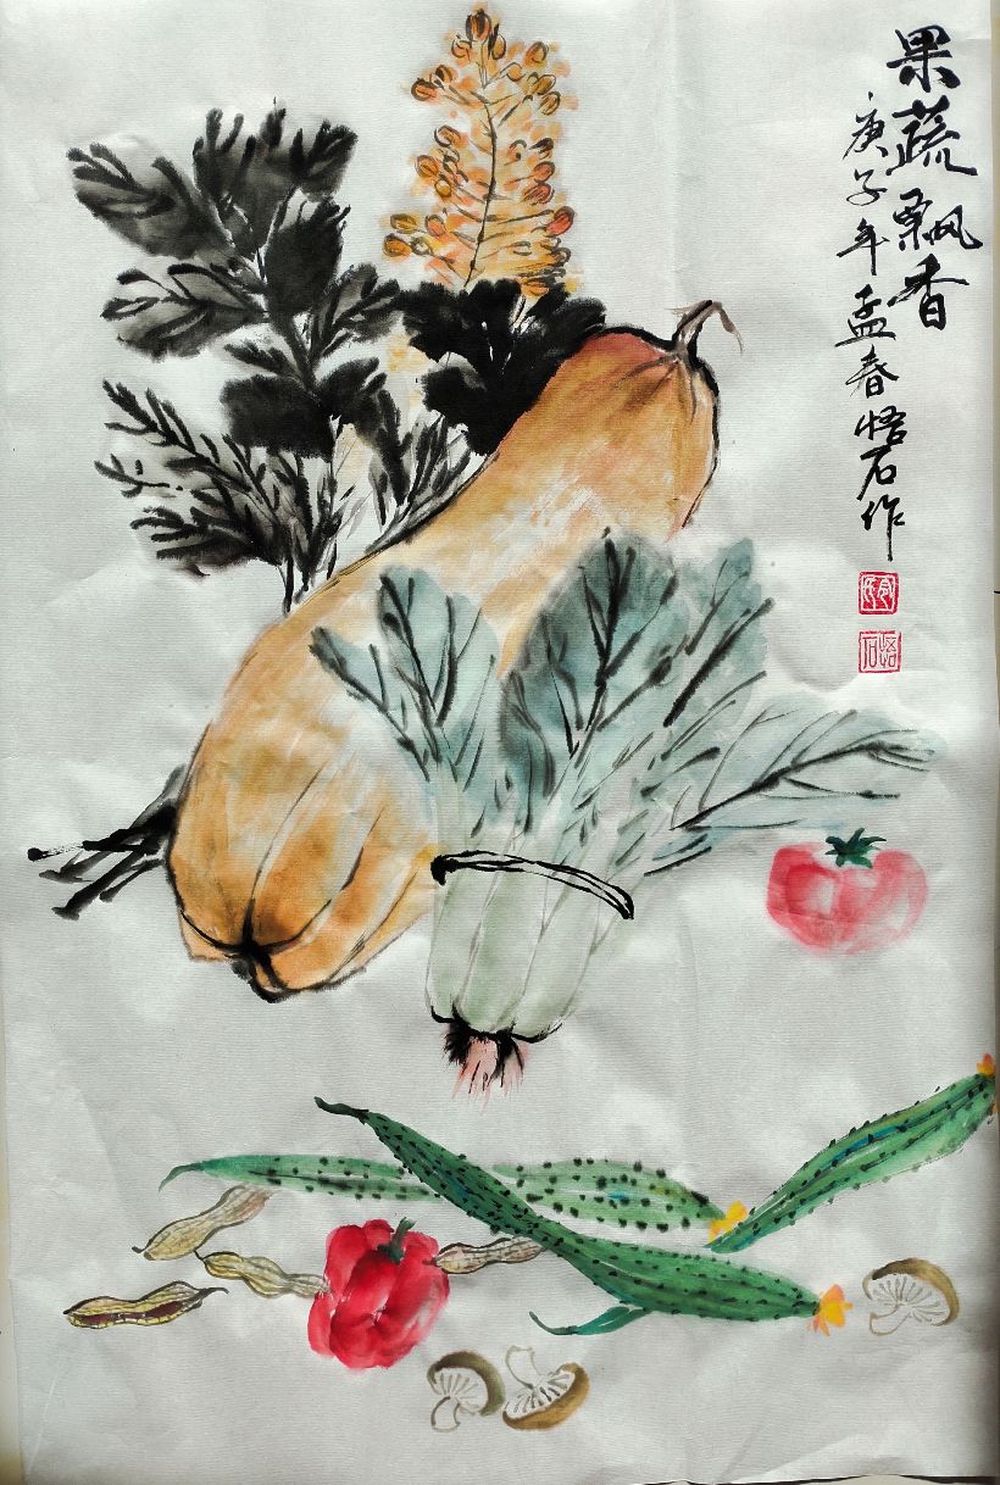 果蔬飘香
庚子年孟春悟石作
悟石